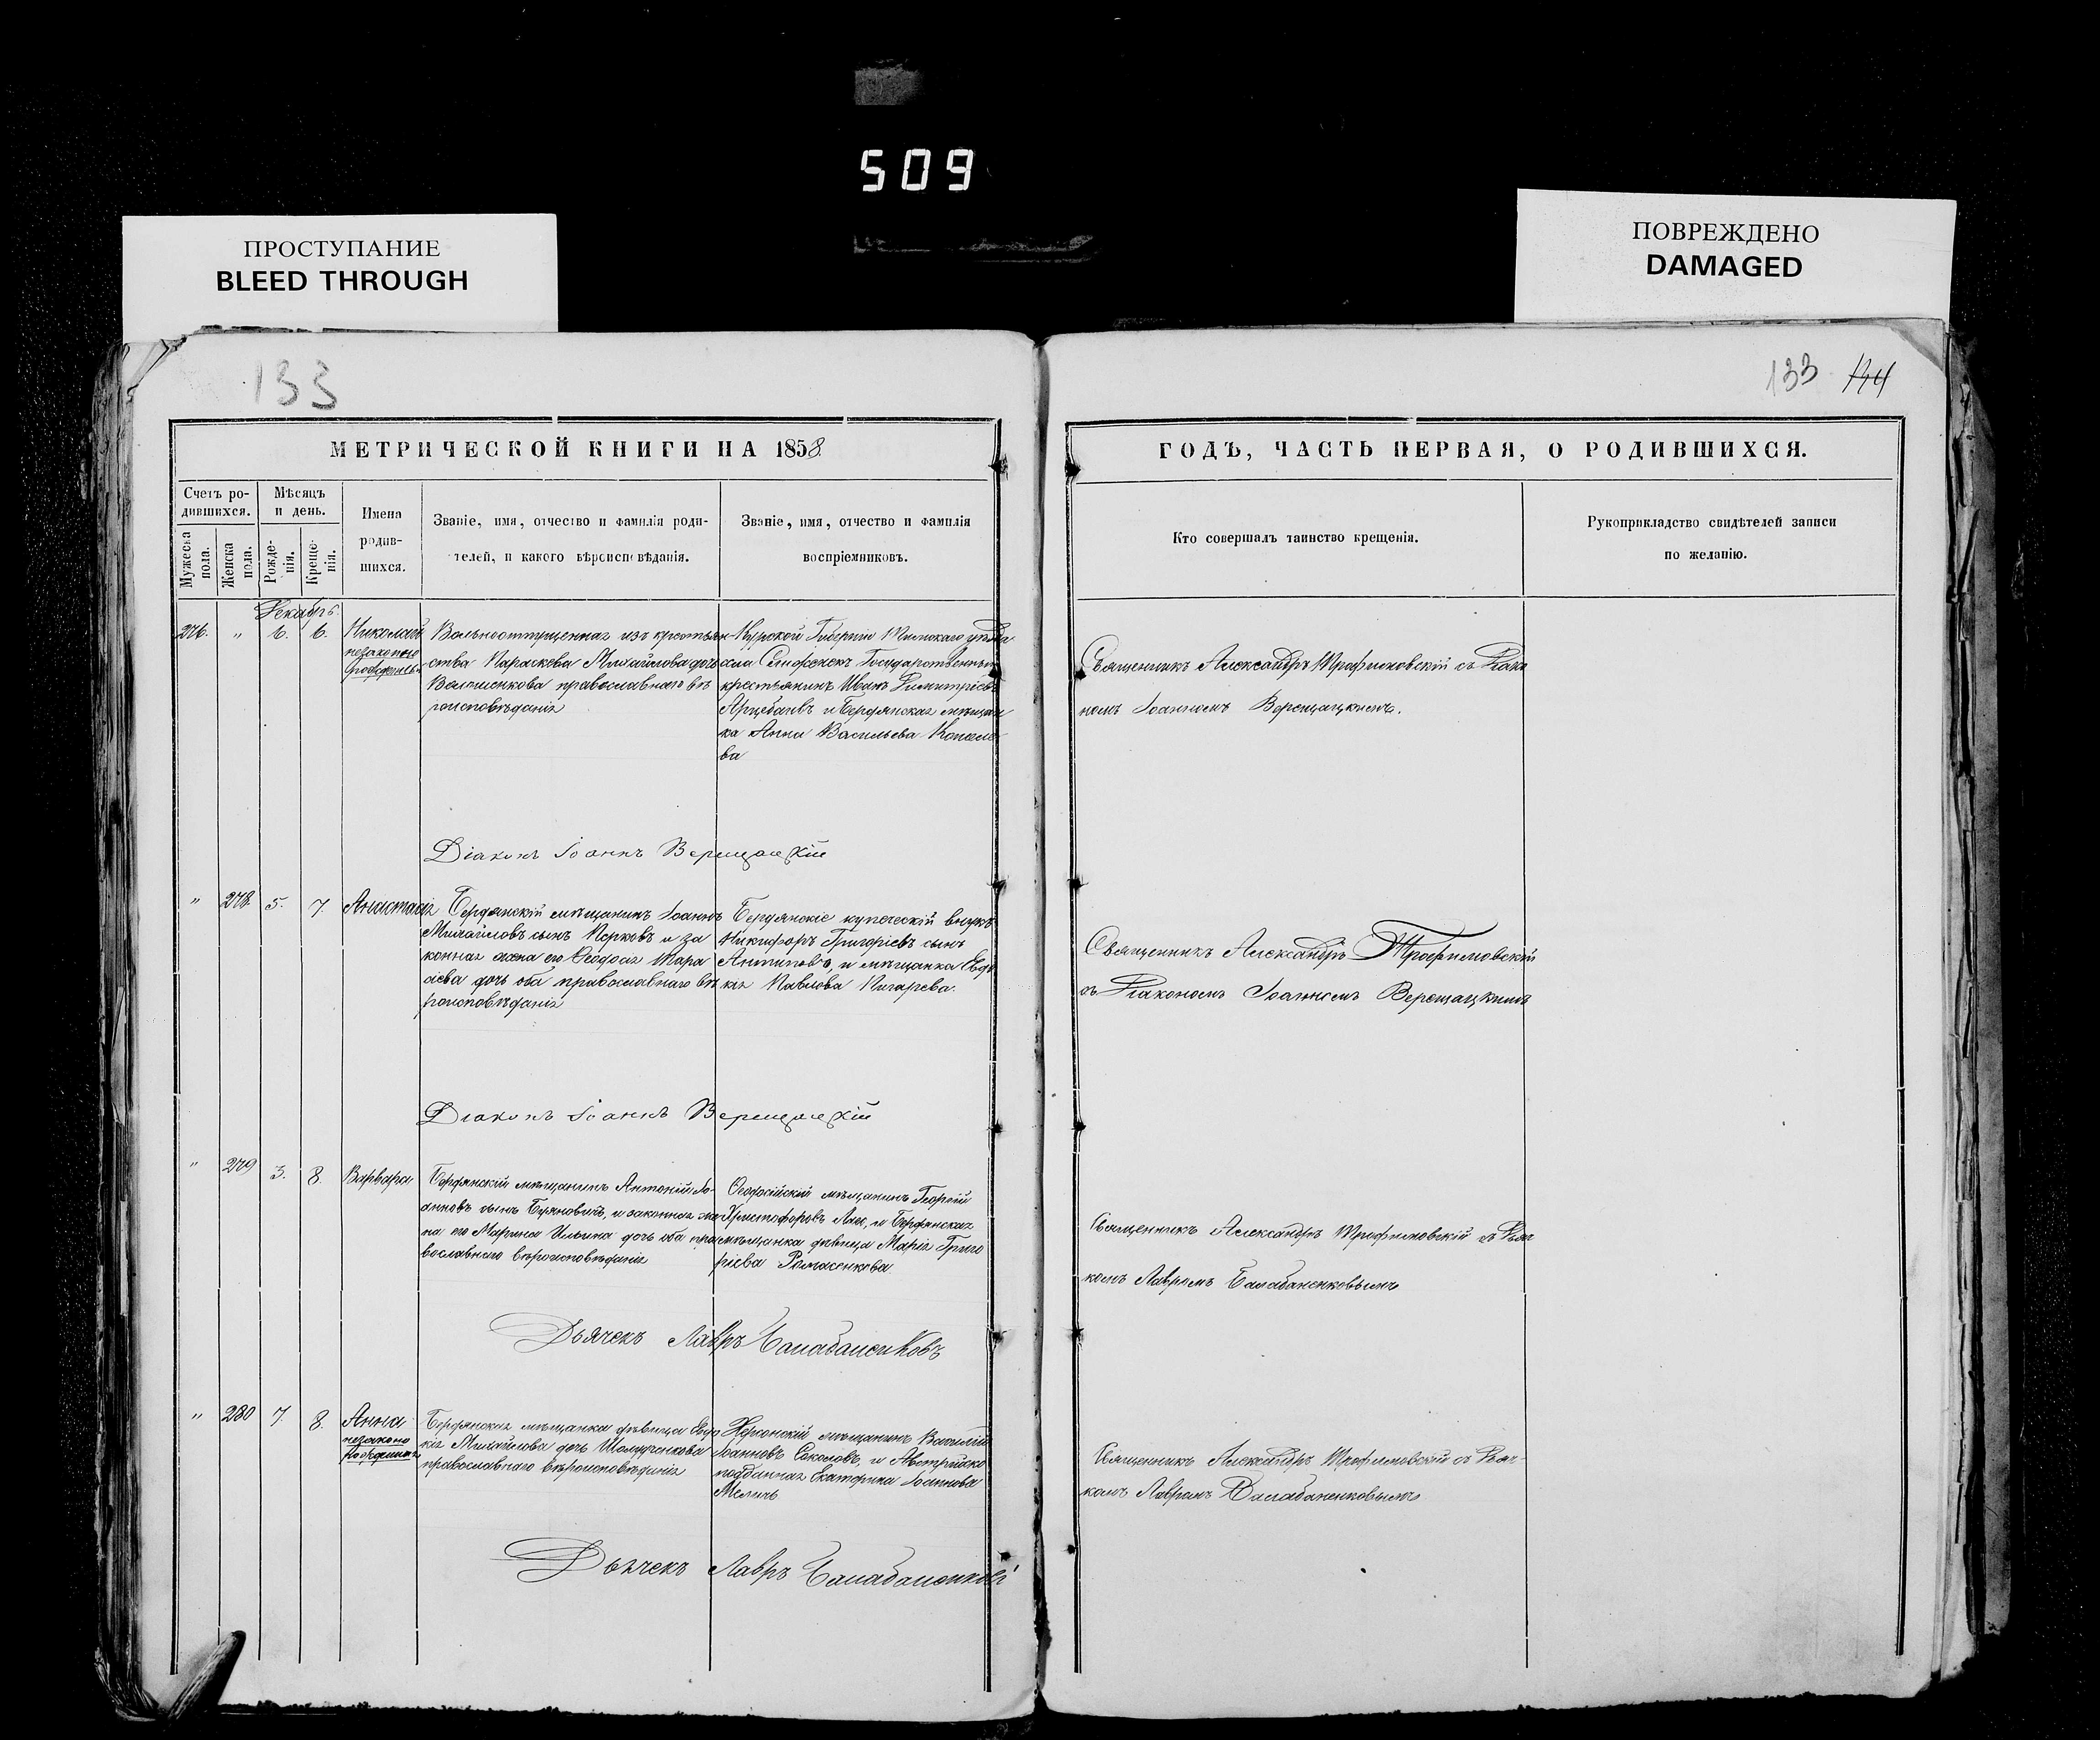 509
ПРОСТУПАНИЕ
BLEED THROUGH
ПОВРЕЖДЕНО
DAMAGED
133
133 134
МЕТРИЧЕСКОЙ КНИГИ НА 1858
ГОДЪ, ЧАСТЬ ПЕРВАЯ, О РОДИВШИХСЯ.
Счетъ ро-
дившихся.
Мужеска пола.
Женска пола.
Мѣсяцъ
и день.
Рожде-
нія.
Креще-
нія.
Имена
родив-
шихся.
Званіе, имя, отчество и фамилія роди-
телей, и какого вѣроисповѣданія.
Званіе, имя, отчество и фамилія
воспріемниковъ.
Кто совершалъ таинство крещенія.
Рукоприкладство свидѣтелей записи
по желанію.
Декабрь
276. " 6. 6. Николай
незаконно
Вольноотпущенная изъ крестьян
ства Параскева Михайлова дочь
православнаго вѣ
роисповѣданія
Курской Губерніи уѣзда
Государственный
крестьянинъ Иванъ Димитріевъ
и Бердянская мѣщан
ка Анна Васильева
ва
Священникъ Александръ Трофимовскій съ Діако
номъ Іоанномъ Верещацкимъ.
Діаконъ Іоаннъ Верещацкій
" 278. 5. 7. Анастасія
Бердянскій мѣщанинъ Іоаннъ
Михайловъ сынъ и за
конная жена его Феодосія Тара
сіева дочь оба православнаго вѣ
роисповѣданія
Бердянскіе купеческій внукъ
Никифоръ Григоріевъ сынъ
Антиповъ, и мѣщанка Евдо
кія Павлова Пигарева.
Священникъ Александръ Трофимовскій
съ Діакономъ Іоанномъ Верещацкимъ
Діаконъ Іоаннъ Верещацкій
" 279 3. 8. Варвара
Бердянскій мѣщанинъ Антоній Іо-
анновъ сынъ Буяновичъ, и законная же
на его Марина Ильина дочь оба пра
вославнаго вѣроисповѣданія
Ѳеодосійскій мѣщанинъ Георгій
Христофоровъ и Бердянская
мѣщанка дѣвица Марія Григо
ріева Ромасенкова
Священникъ Александръ Трофимовскій съ Дьяч
комъ Лавромъ Балабаненковымъ
Дьячекъ Лавръ Балабаненковъ
" 280 7. 8. Анна
незаконно
рожденная
Бердянская мѣщанка дѣвица Евдо
кія Михайлова дочь
православнаго вѣроисповѣданія
Херсонскій мѣщанинъ Василій
Іоанновъ Соколовъ, и Австрійско
подданная Екатерина Іоаннова
Священникъ Александръ Трофимовскій съ Дьяч-
комъ Лавромъ Балабаненковымъ
Дьячекъ Лавръ Балабаненковъ